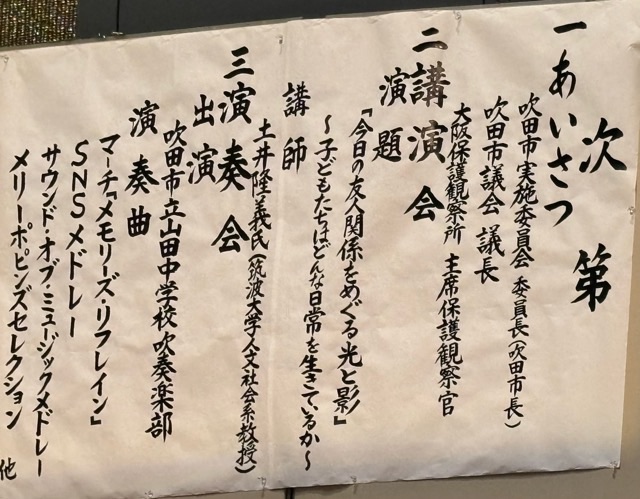 次第
一 あいさつ
吹田市実施委員会 委員長(吹田市長)
吹田市議会 議長
大阪保護観察所 主席保護観察官
二 講演会
演題
『今日の友人関係をめぐる光と影』
~子どもたちはどんな日常を生きているか~
講師
土井隆義氏(筑波大学人文社会系教授)
三 演奏会
出演
吹田市立山田中学校吹奏楽部
演奏曲
マーチ『メモリーズ・リフレイン』
SNSメドレー
サウンド・オブ・ミュージックメドレー
メリーポピンズセレクション 他